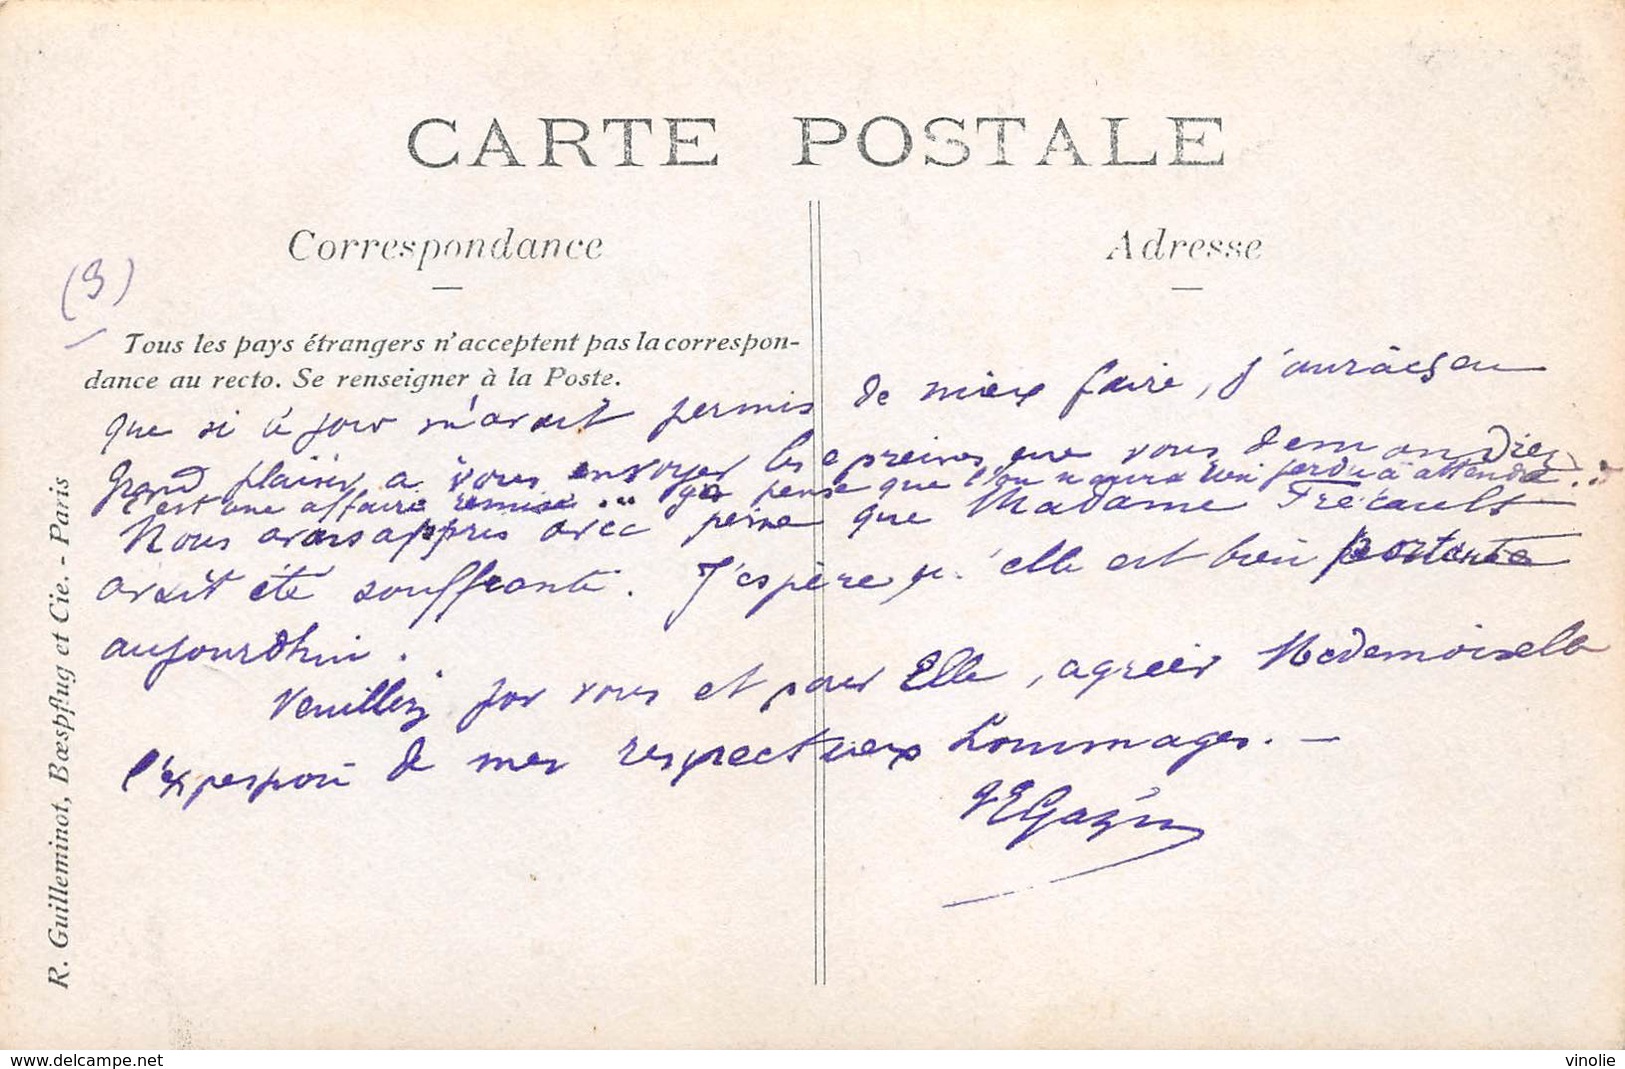 CARTE POSTALE
Correspondance
Adresse
(3)
Tous les pays étrangers n'acceptent pas la correspon-
dance au recto. Se renseigner à la Poste.
que si ce jour m'avait permis de mieux faire, j'aurais eu
grand plaisir a vous envoyer les epreuves que vous demandiez
C'est une affaire remise... je pense que l'on n'aura rien perdu à attendre...
Nous avons appris avec peine que Madame Frécault
avait été souffrante. J'espère qu'elle est bien portante
aujourdhui.
Veuillez por vous et pour Elle, agréer Mademoiselle
l'expression de mes respectueux hommages. —
R. Guilleminot, Bœspflug et Cie. - Paris
www.delcampe.net
vinolie